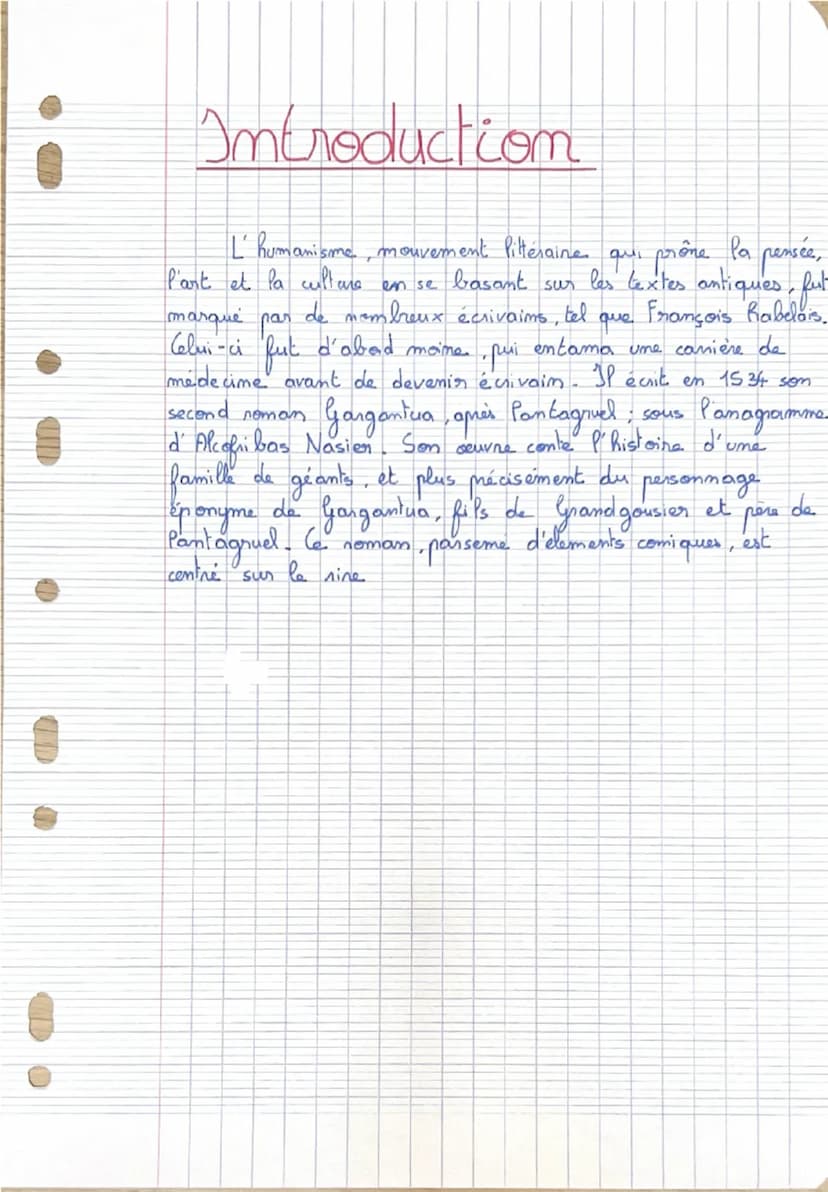 Introduction
L'humanisme, mouvement littéraire qui prône la pensée,
l'art et la culture en se basant sur les textes antiques, fut
marqué par de nombreux écrivains, tel que François Rabelais.
Celui-ci fut d'abord moine, puis entama une carrière de
médecine avant de devenir écrivain. Il écrit en 1534 son
second roman Gargantua, après Pantagruel ; sous l'anagramme
d'Alcofribas Nasier. Son œuvre conte l'histoire d'une
famille de géants, et plus précisément du personnage
éponyme de Gargantua, fils de Grandgousier et père de
Pantagruel. Ce roman, parsemé d'éléments comiques, est
centré sur le rire